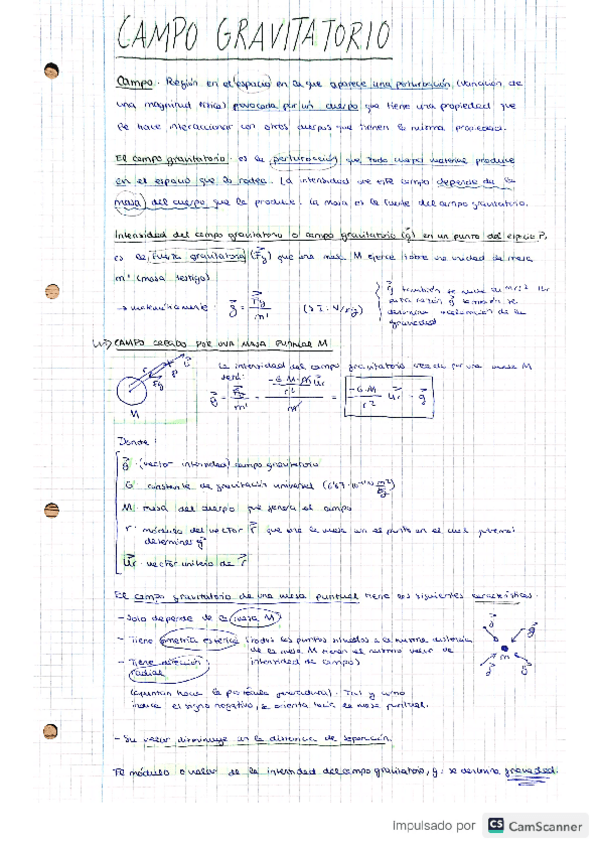 CAMPO GRAVITATORIO
Campo. Región en el espacio en la que aparece una perturbación (variación de
una magnitud física) provocada por un cuerpo que tiene una propiedad que
le hace interaccionar con otros cuerpos que tienen la misma propiedad.
El campo gravitatorio es la perturbación que todo cuerpo material produce
en el espacio que lo rodea. La intensidad de este campo depende de la
masa del cuerpo que la produce. La masa es la fuente del campo gravitatorio.
Intensidad del campo gravitatorio o campo gravitatorio (g) en un punto del espacio P,
es la fuerza gravitatoria (Fg) que una masa M ejerce sobre una unidad de masa
m' (masa testigo)
→ matemáticamente: g = Fg / m' (S.I. N/kg)
gravedad
CAMPO CREADO POR UNA MASA PUNTUAL M
M
La intensidad del campo gravitatorio creado por una masa M
será:
g = Fg / m' = = -G·M / r² ur = g
Donde:
g (vector intensidad) campo gravitatorio
G constante de gravitación universal
M masa del cuerpo que genera el campo
r módulo del vector r que une la masa con el punto en el cual
determinar g
ur vector unitario de r
El campo gravitatorio de una masa puntual tiene las siguientes características.
- Solo depende de la masa M
- Tiene simetría esférica (todos los puntos situados a la misma distancia
de la masa M tienen el mismo valor de
intensidad de campo)
- Tiene dirección radial
(apuntan hacia la partícula . Tal y como
indica el signo negativo, se orienta hacia la masa puntual.
- Su valor disminuye con la distancia de separación.
módulo o valor de la intensidad del campo gravitatorio, g, se denomina gravedad.
Impulsado por CS CamScanner